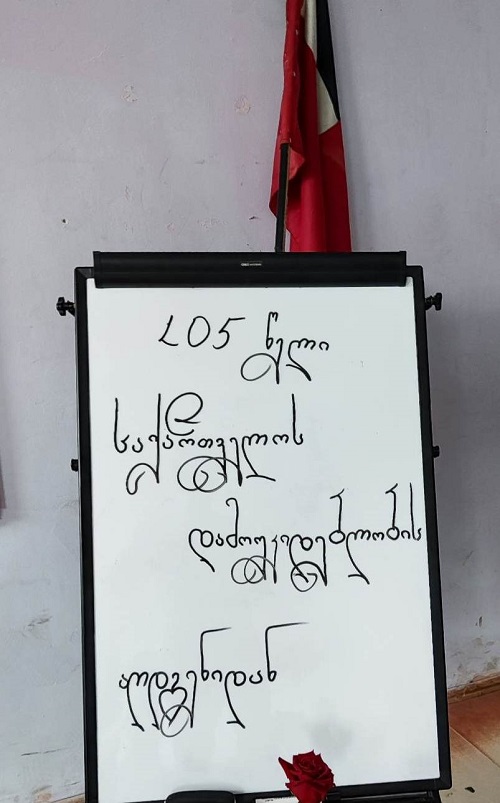 105 წელი
საქართველოს
დამოუკიდებლობის
აღდგენიდან